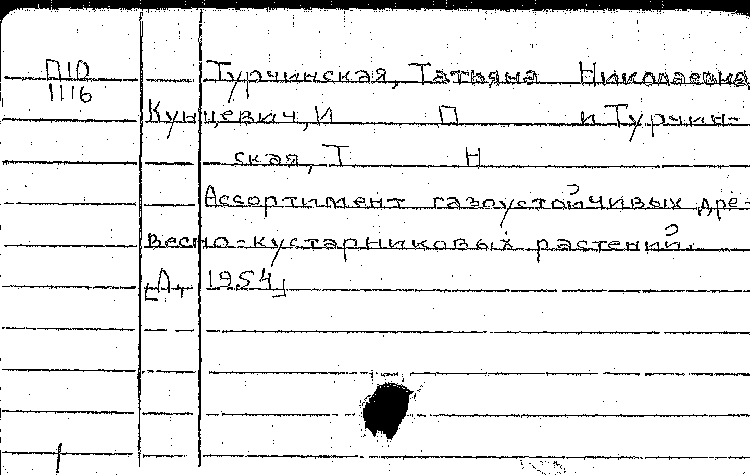 П10 Турчинская, Татьяна Николаевна
1116
Кунцевич, И П и Турчин-
ская, Т Н
Ассортимент газоустойчивых дре-
весно-кустарниковых растений.
[Л, 1954]